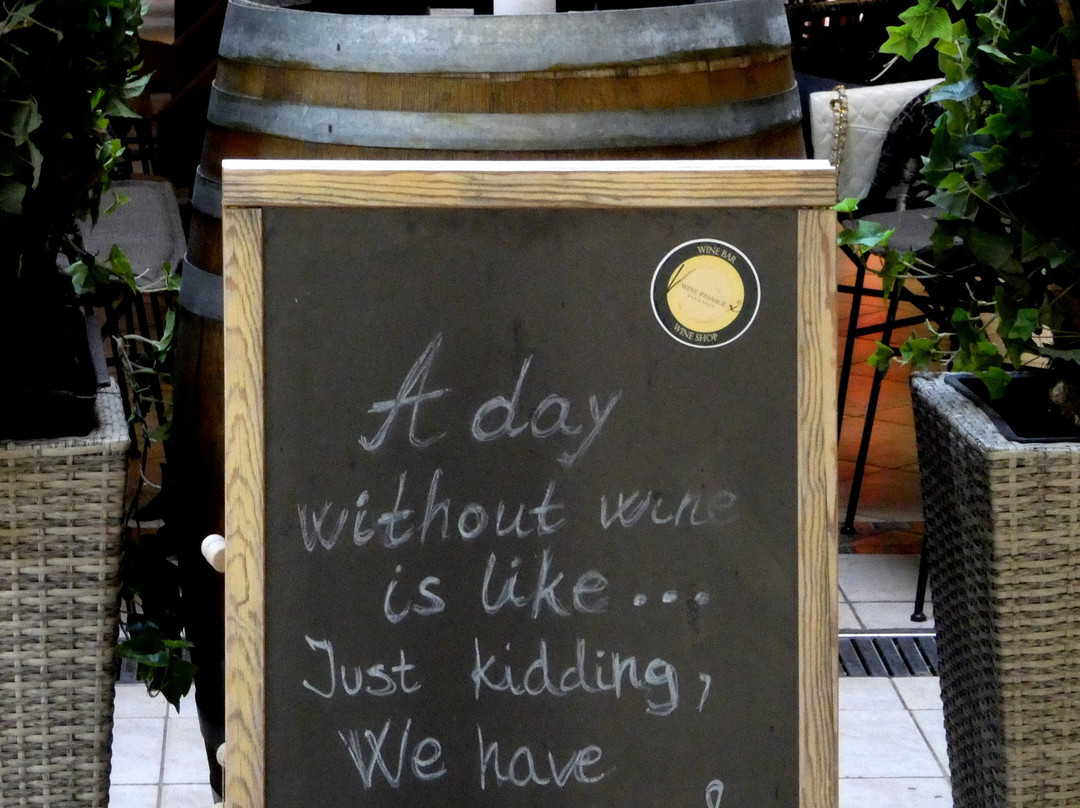 WINE BAR
WINE PASSAGE
WINE SHOP
A day
without wine
is like...
Just kidding,
We have